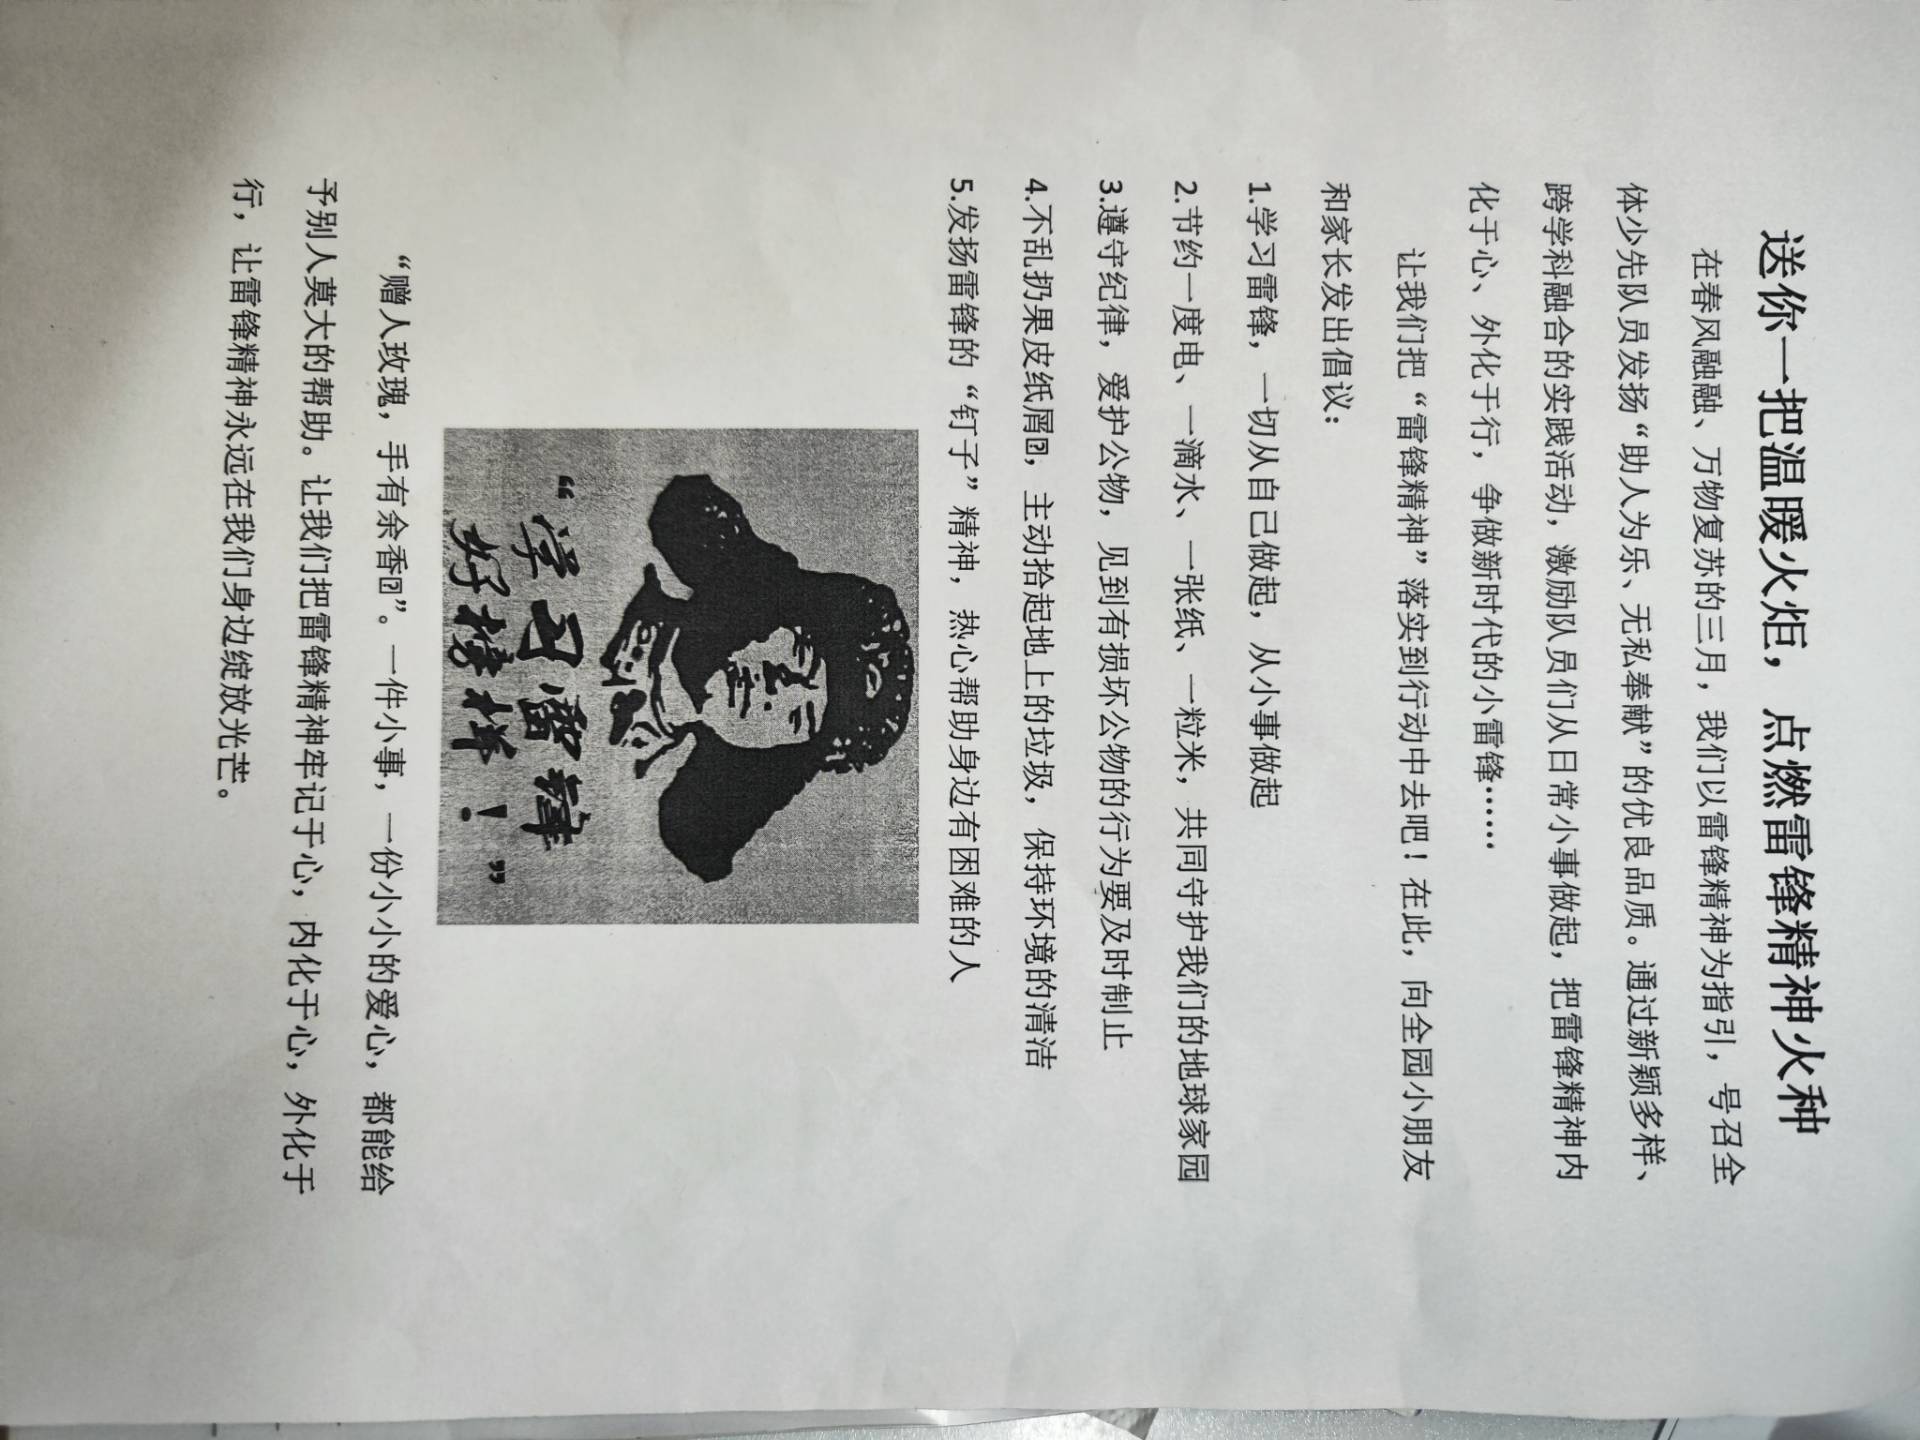 送你一把温暖火炬，点燃雷锋精神火种
在春风融融、万物复苏的三月，我们以雷锋精神为指引，号召全
体少先队员发扬“助人为乐、无私奉献”的优良品质。通过新颖多样、
跨学科融合的实践活动，激励队员们从日常小事做起，把雷锋精神内
化于心、外化于行，争做新时代的小雷锋……
让我们把“雷锋精神”落实到行动中去吧！在此，向全园小朋友
和家长发出倡议：
1.学习雷锋，一切从自己做起，从小事做起
2.节约一度电、一滴水、一张纸、一粒米，共同守护我们的地球家园
3.遵守纪律，爱护公物，见到有损坏公物的行为要及时制止
4.不乱扔果皮纸屑⍰，主动拾起地上的垃圾，保持环境的清洁
5.发扬雷锋的“钉子”精神，热心帮助身边有困难的人
“学习雷锋
好榜样！”
“赠人玫瑰，手有余香⍰”。一件小事，一份小小的爱心，都能给
予别人莫大的帮助。让我们把雷锋精神牢记于心，内化于心，外化于
行，让雷锋精神永远在我们身边绽放光芒。